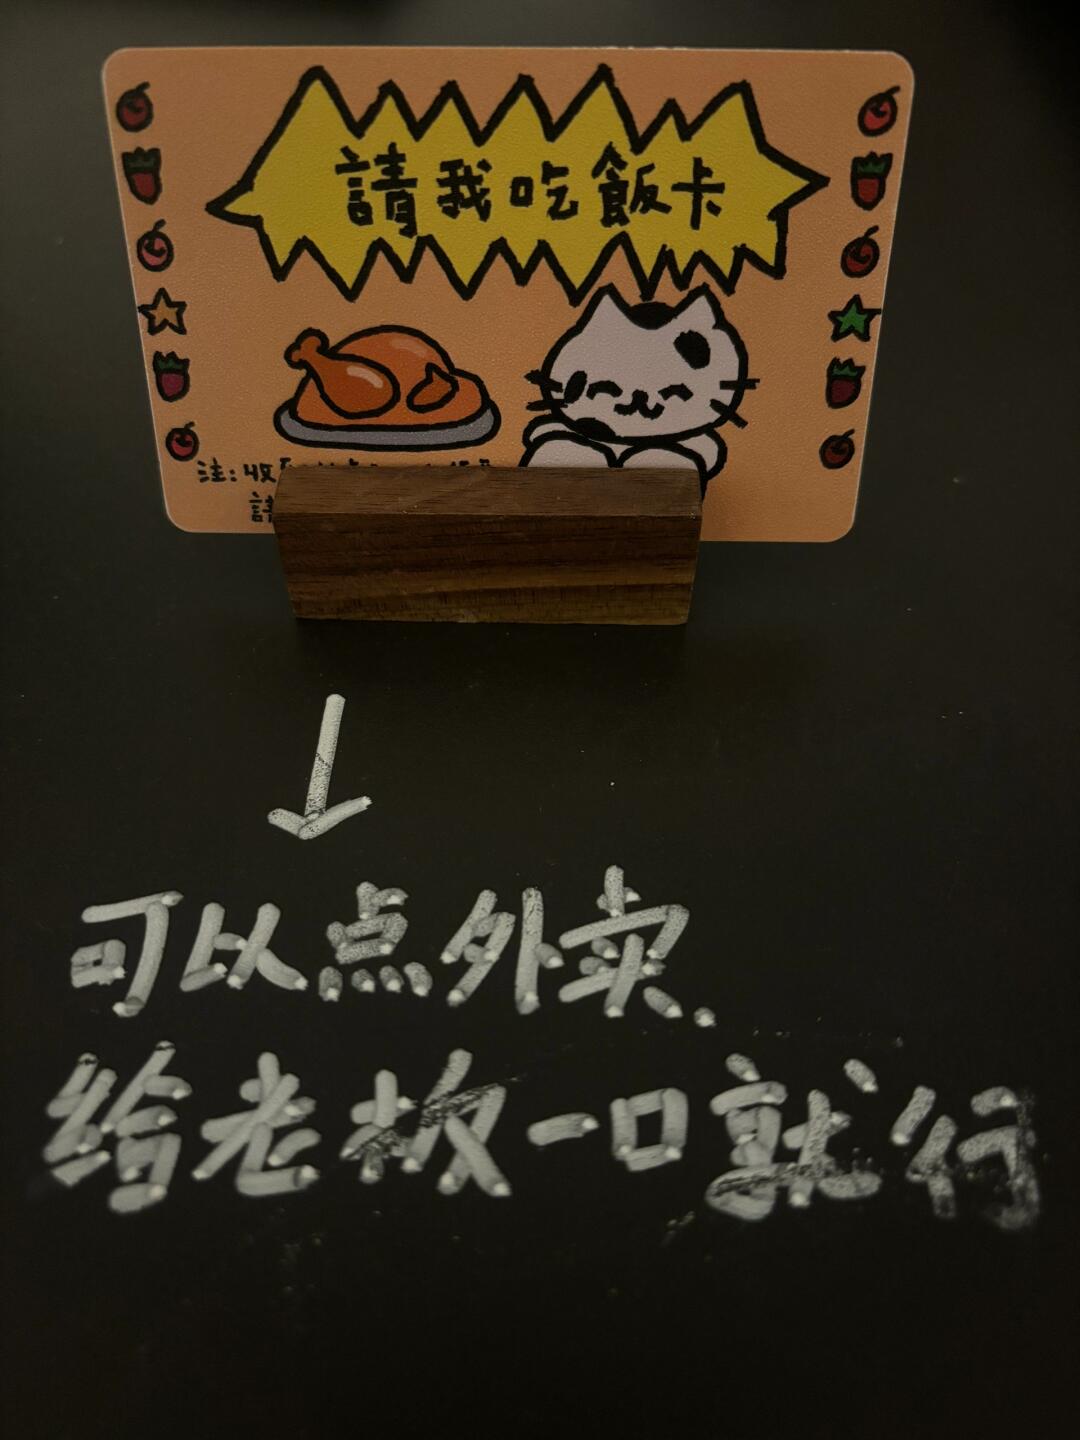 請我吃飯卡
注:收
請
可以点外卖、
给老板一口就行